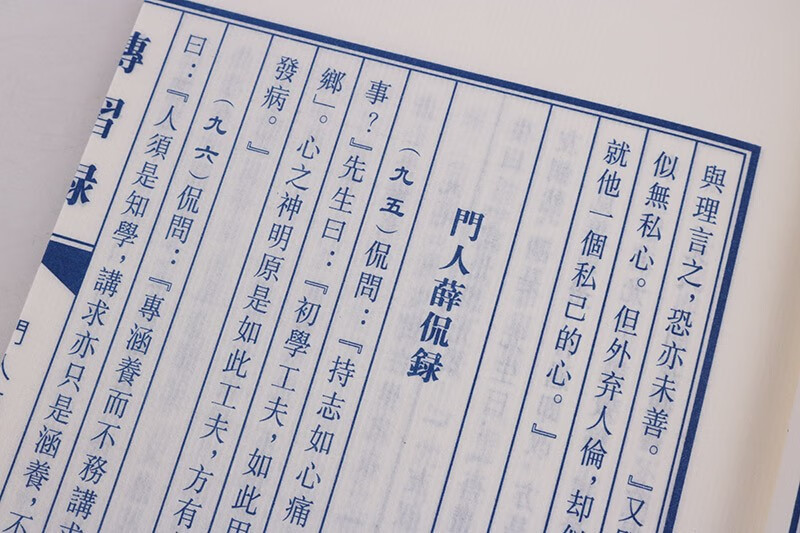 與理言之，恐亦未善。』又問
似無私心。但外弃人倫，却似
就他一個私己的心。』
門人薛侃録
（九五）侃問：『持志如心痛
事？』先生曰：『初學工夫，如此用
鄉」。心之神明原是如此工夫，方有
發病。』
（九六）侃問：『專涵養而不務講求
曰：『人須是知學，講求亦只是涵養，不
傳習録
門人